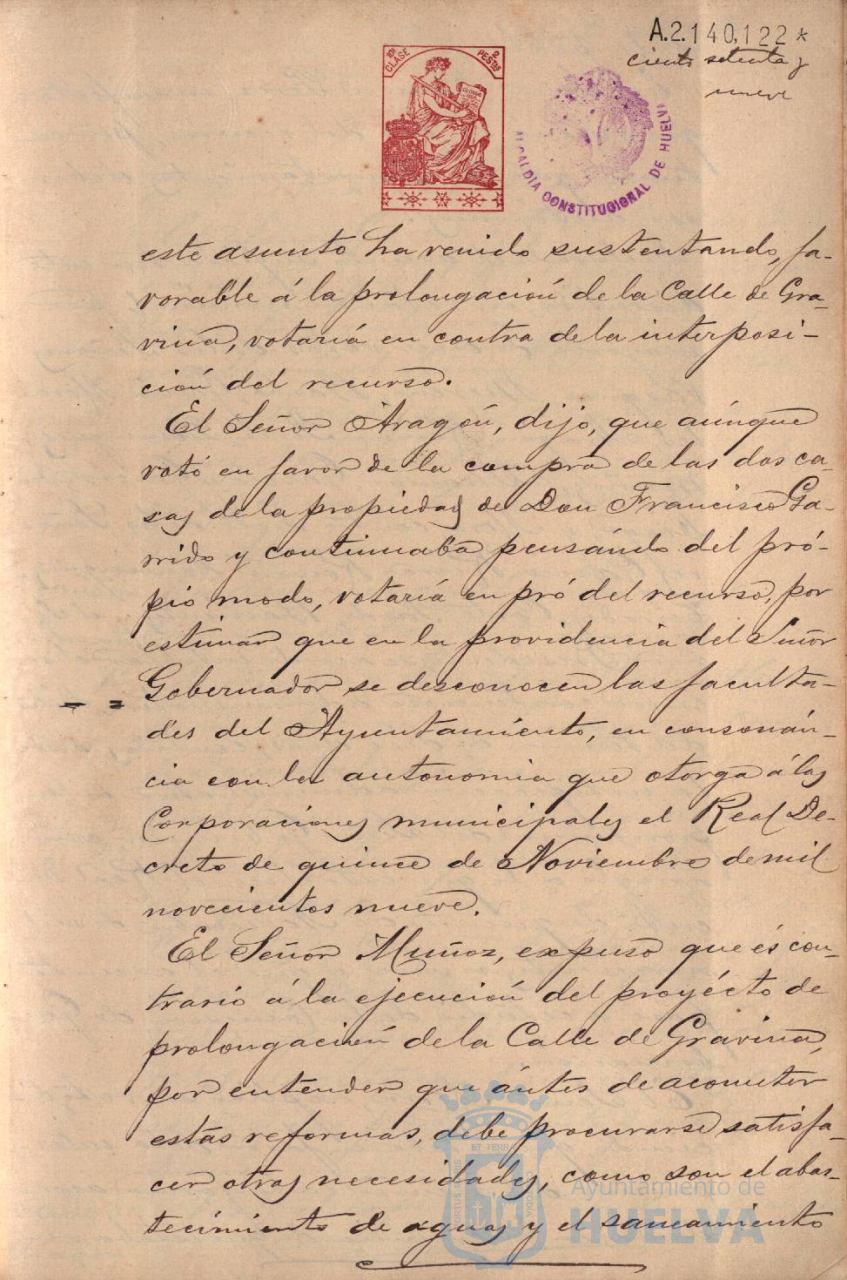 A.2.140,122 *
ciento setenta y
nueve
10ª CLASE 2 PESTAS
ALCALDIA CONSTITUCIONAL DE HUELVA
este asunto ha venido sustentando, fa-
vorable á la prolongación de la Calle de Gra-
vina, votaría en contra de la interposi-
ción del recurso.
El Señor Aragón, dijo, que aúnque
votó en favor de la compra de las dos ca-
sas de la propiedad de Don Francisco Ga-
rrido y continuaba pensándo del pró-
pio modo, votaría en pró del recurso, por
estimar que en la providencia del Señor
Gobernador se desconocen las faculta-
des del Ayuntamiento, en consonán-
cia con la autonomia que otorga á las
Corporaciones municipales el Real De-
creto de quince de Noviembre de mil
novecientos nueve.
El Señor Muñoz, expuso que és con-
trario á la ejecución del proyécto de
prolongación de la Calle de Gravina,
por entender que ántes de acometer
estas reformas, debe procurarse satisfa-
cer otras necesidades, como son el abas-
tecimiento de aguas y el saneamiento
Ayuntamiento de
HUELVA